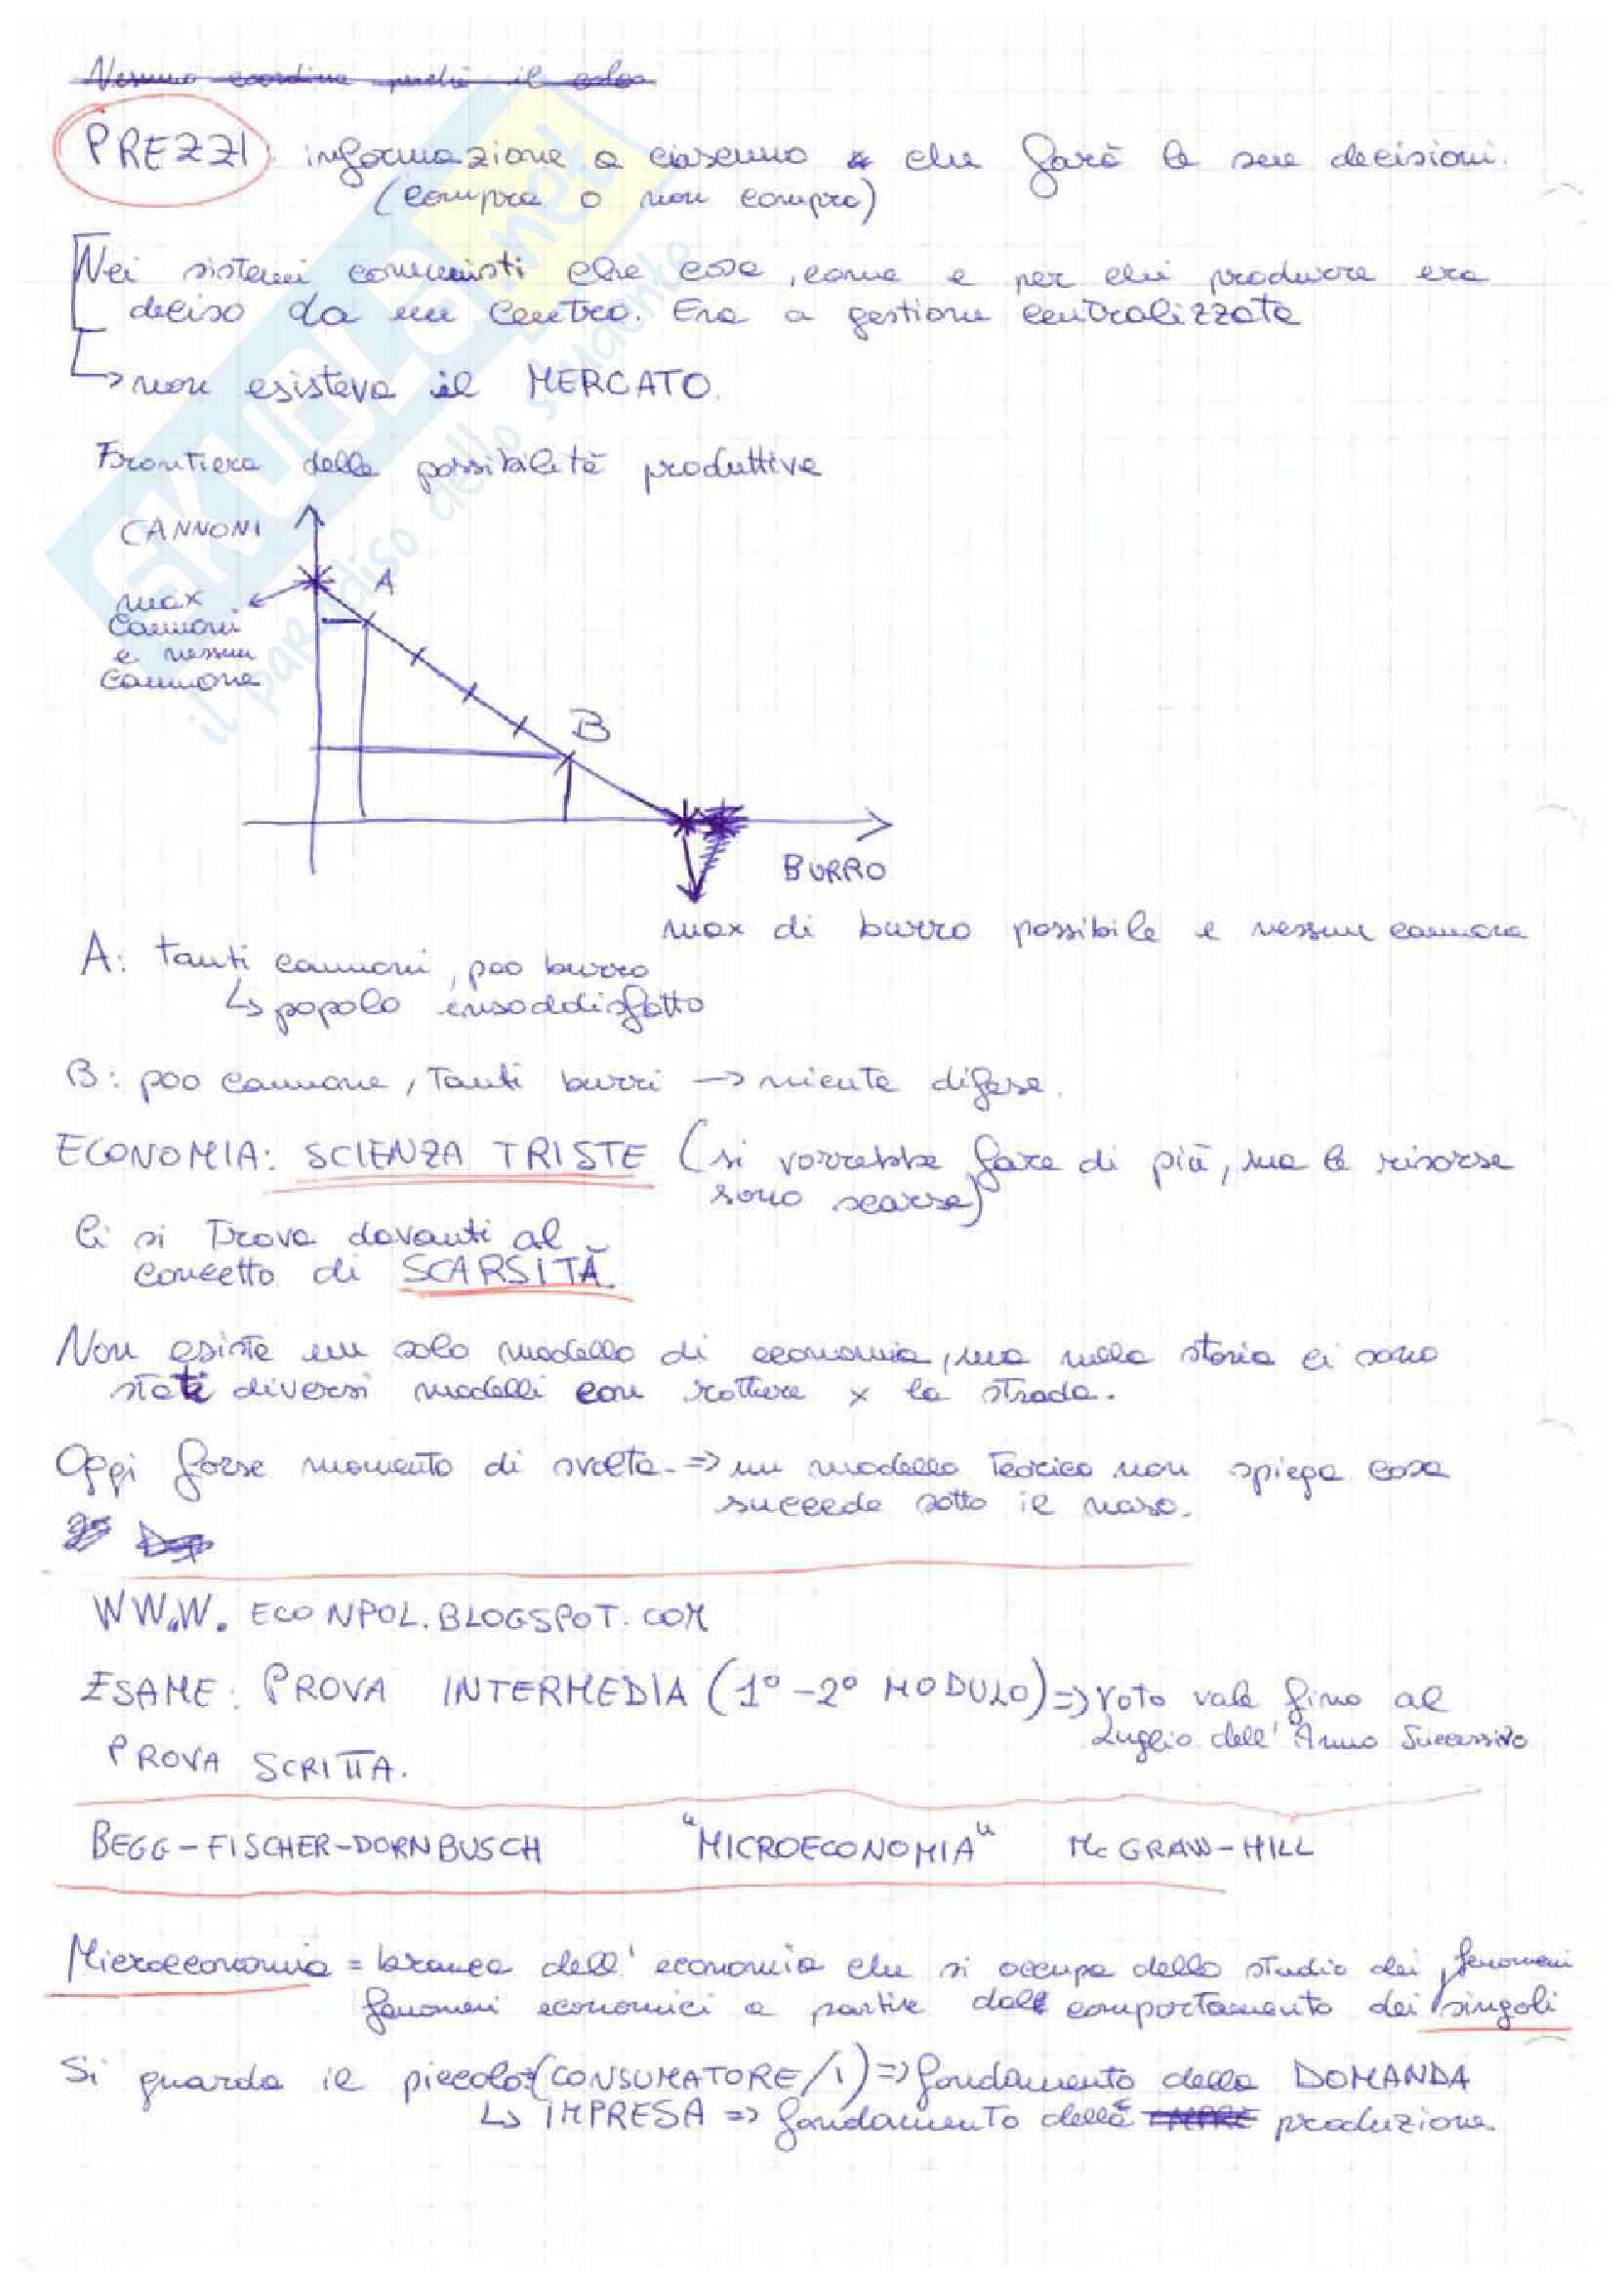 Nessuno coordina perché il
PREZZI: informazione a ciascuno che farà le sue decisioni.
(compra o non compra)
Nei sistemi comunisti che cosa, come e per chi produrre era
deciso da un centro. Era a gestione centralizzata
↳ non esisteva il MERCATO.
Frontiera delle possibilità produttive
CANNONI
A
max
Cannoni
e nessun
Cannone
B
BURRO
max di burro possibile e nessun cannone
A: tanti cannoni, poo burro
↳ popolo insoddisfatto
B: poo cannone, tanti burri → niente difesa.
ECONOMIA: SCIENZA TRISTE (si vorrebbe fare di più, ma le risorse
sono scarse)
Ci si trova davanti al
concetto di SCARSITÀ.
Non esiste un solo modello di economia, ma nella storia ci sono
stati diversi modelli con rotture x la strada.
Oggi forse momento di svolta. => un modello teorico non spiega cosa
succede sotto il naso.
WWW. ECONPOL.BLOGSPOT.COM
ESAME: PROVA INTERMEDIA (1° - 2° MODULO) => voto vale fino al
Luglio dell'Anno Successivo
PROVA SCRITTA.
BEGG - FISCHER - DORNBUSCH "MICROECONOMIA" Mc GRAW - HILL
Microeconomia = branca dell'economia che si occupa dello studio dei fenomeni
fenomeni economici a partire dal comportamento dei singoli
Si guarda il piccolo: (CONSUMATORE/I) => fondamento della DOMANDA
↳ IMPRESA => fondamento della IMPRE produzione
SKUOLA.net
il paradiso dello studente